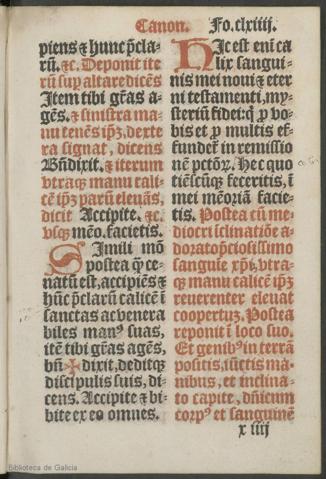 Canon. Fo.clxiiij.
piens ⁊ hunc p̄cla-
rū. ⁊c. Deponit ite
rū sup altare dicēs
Item tibi gr̄as a-
gēs. ⁊ sinistra ma-
nu tenēs ip̄ȝ, dexte
ra signat, dicens
Bn̄dixit. ⁊ iterum
vtraq̄ manu cali-
cē ip̄ȝ parū eleuās,
dicit Accipite. ⁊c.
vsq̄ meō. facietis.
Simili mō
postea q̄ ce-
natū est, accipiēs ⁊
hūc p̄clarū calicē ī
sanctas ac venera
biles manꝰ suas,
itē tibi gr̄as agēs,
bn̄ ✠ dixit, deditq̄
discipulis suis, di-
cens. Accipite ⁊ bi-
bite ex eo omnes.
Hic est enī ca
lix sangui-
nis mei noui ⁊ eter
ni testamenti, my-
steriū fidei: q̄ ꝓ vo-
bis et ꝓ multis ef-
fundet̄ in remissio
nē pctōꝝ. Hec quo
tiēscūq̄ feceritis, ī
mei mēoriā facie-
tis. Postea cū me-
diocri īclinatiōe a-
dorato p̄ciosissimo
sanguīe xp̄i, vtra-
q̄ manu calicē ip̄ȝ
reuerenter eleuat
coopertuȝ. Postea
reponit ī loco suo.
Et genibꝰ in terrā
positis, iūctis ma-
nibus, et inclina-
to capite, dn̄icum
corpꝰ et sanguinē
x iiij
Biblioteca de Galicia